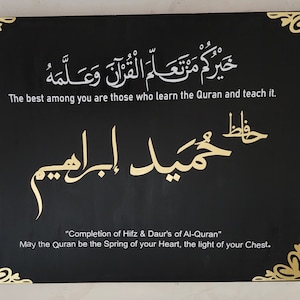 خَيْرُكُمْ مَنْ تَعَلَّمَ الْقُرْآنَ وَعَلَّمَهُ
The best among you are those who learn the Quran and teach it.
حافظ
حُمَيد إبراهيم
"Completion of Hifz & Daur's of Al-Quran"
May the Quran be the Spring of your Heart, the light of your Chest.